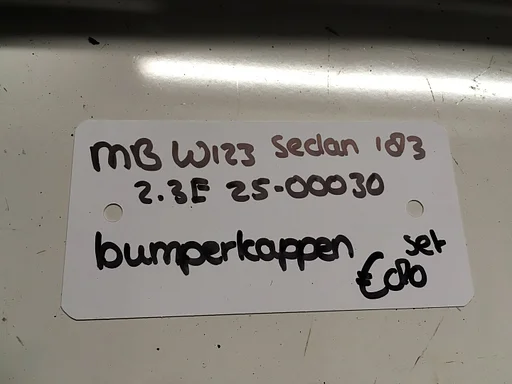 MB W123 Sedan '83
2.3E 25-00030
bumperkappen set
€80